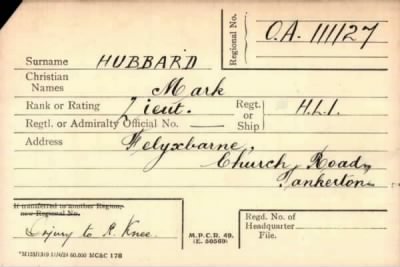 Regional No. O.A. 111127
Surname HUBBARD
Christian Names Mark
Rank or Rating Lieut. Regt. or Ship H.L.I.
Regtl. or Admiralty Official No.
Address Helyxbarne,
Church Road,
Tankerton
If transferred to another Region, new Regional No.
Injury to R. Knee.
M.P.C.R. 49.
(E. 50569)
Regd. No. of Headquarter File.
MC&C 178